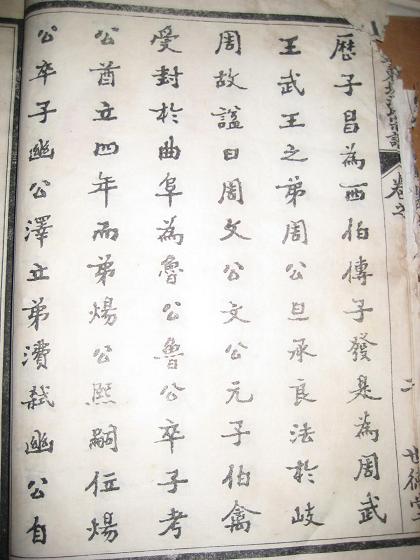 歷子昌為西伯傳子發是為周武
王武王之弟周公旦承良法於岐
周故諡曰周文公文公元子伯禽
受封於曲阜為魯公魯公卒子考
公酋立四年而弟煬公熙嗣位煬
公卒子幽公澤立弟㵒弒幽公自
卷之
二